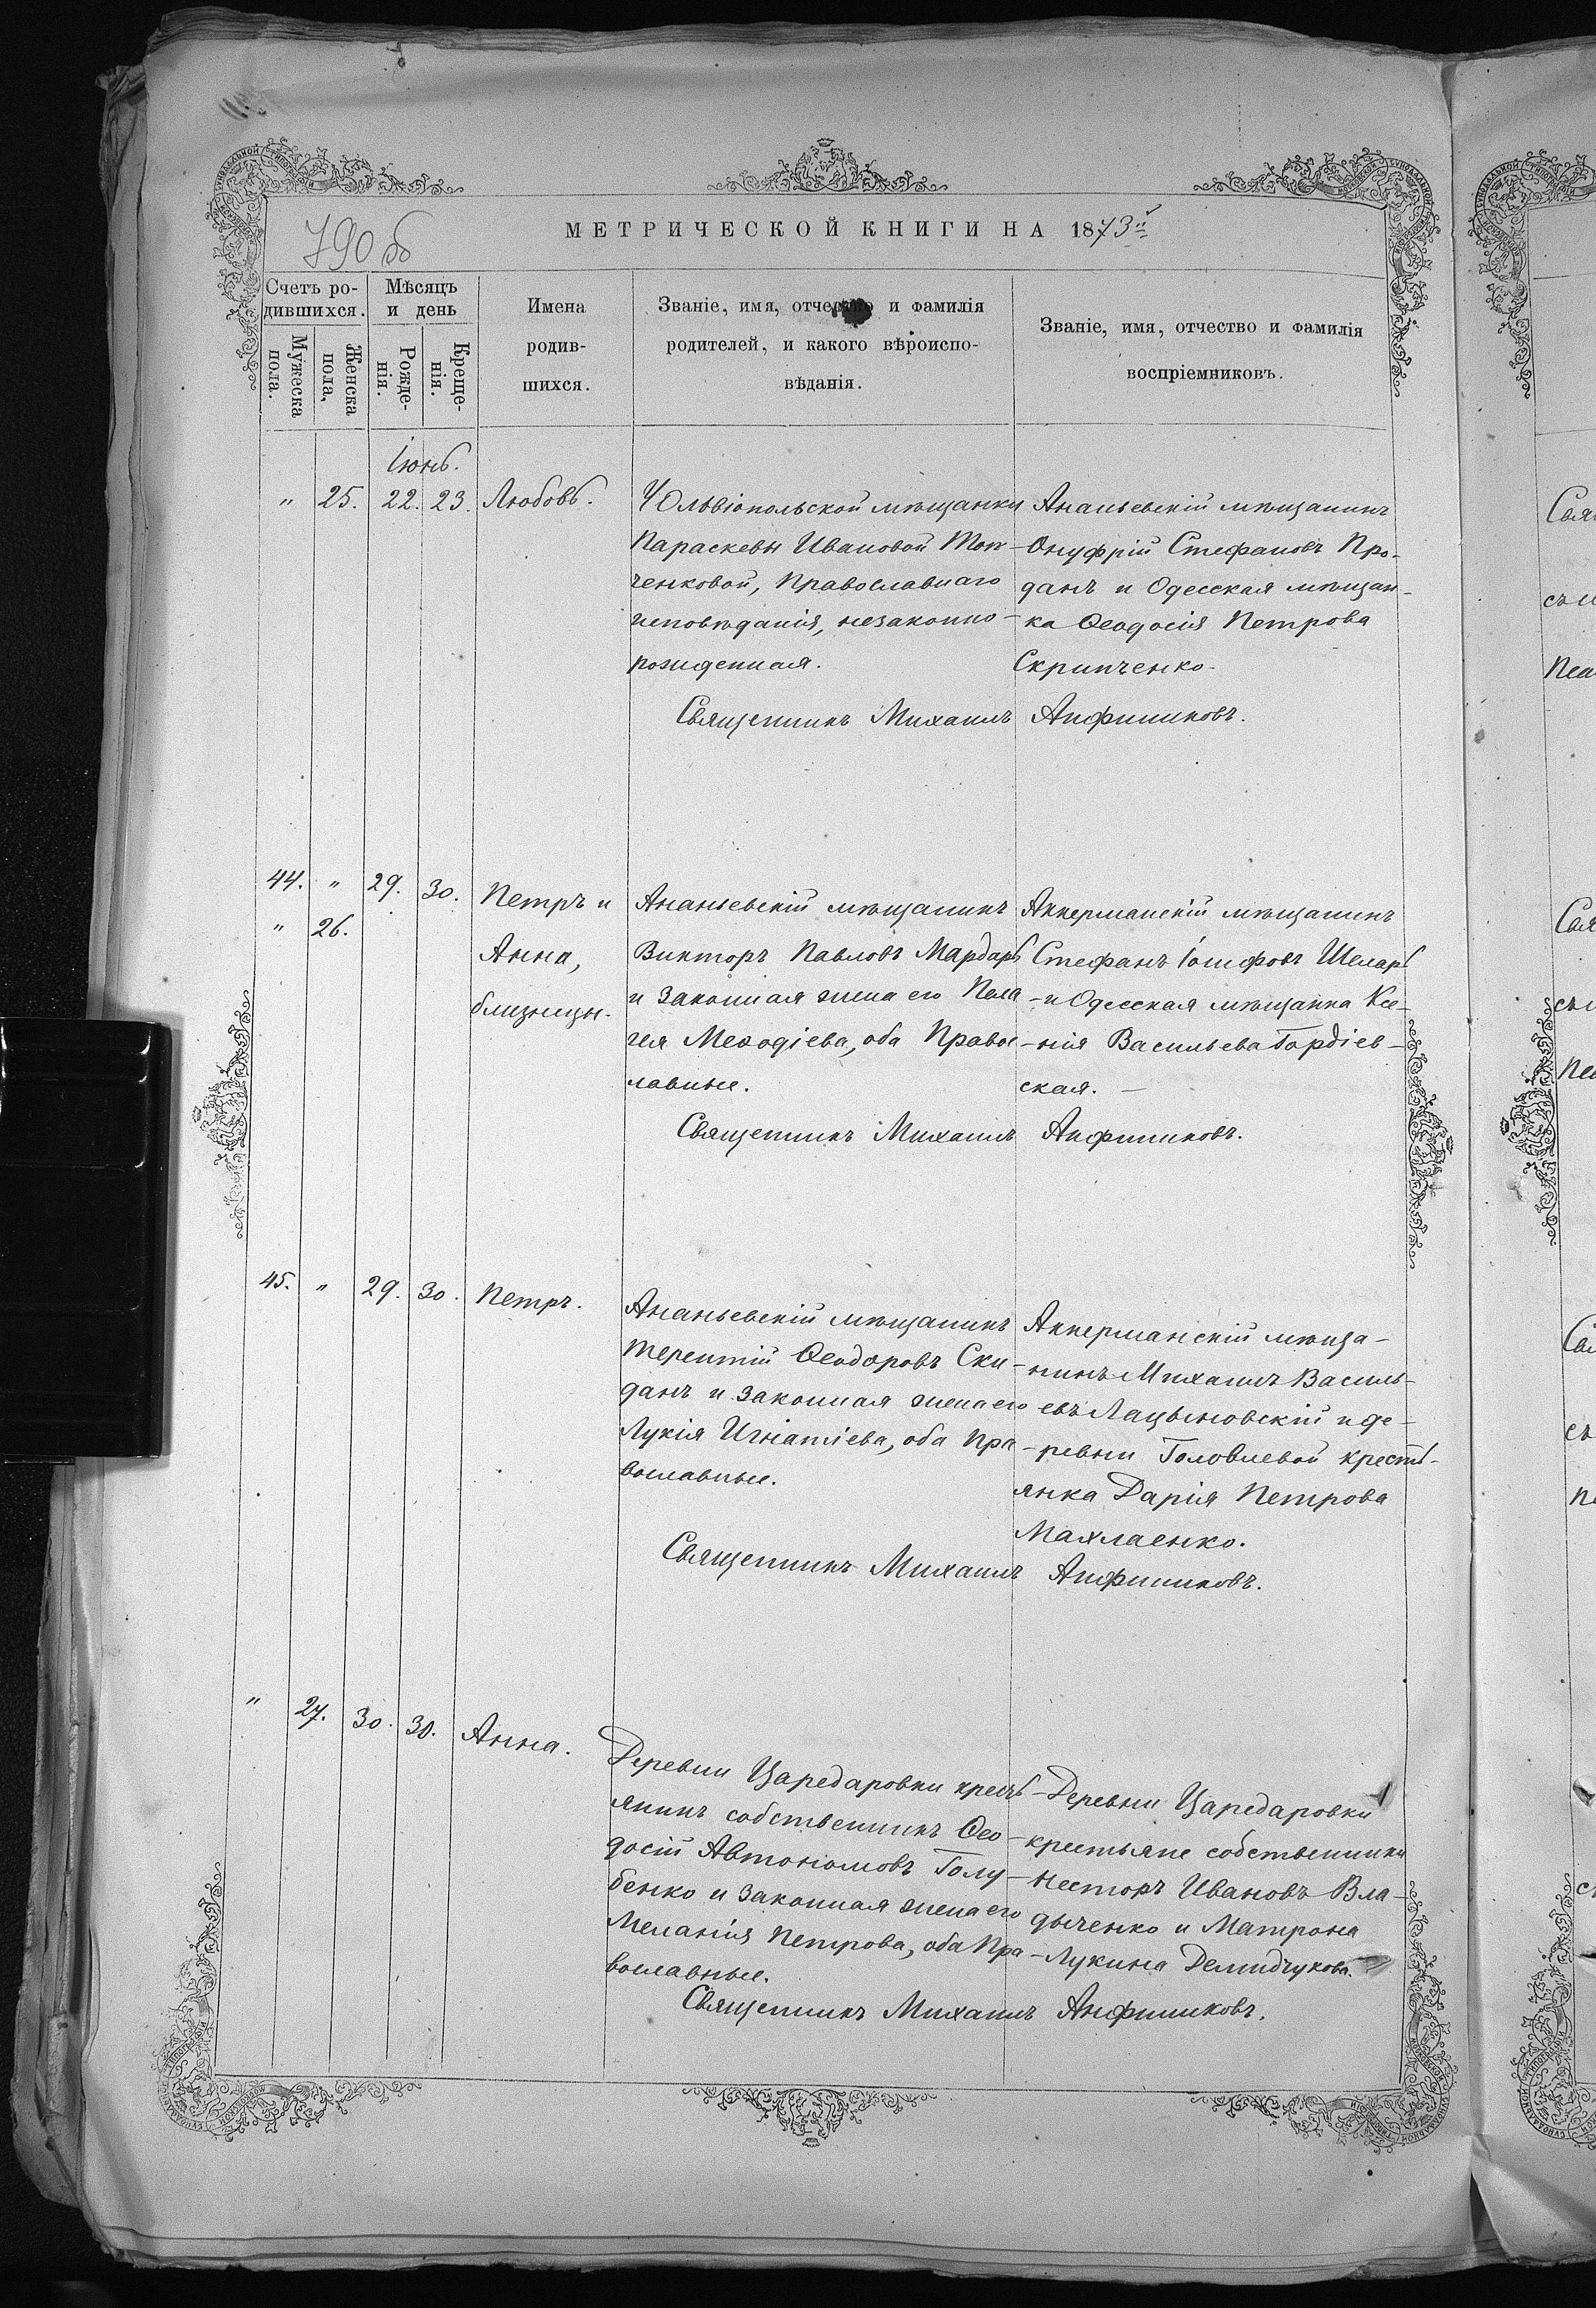 790 об
МЕТРИЧЕСКОЙ КНИГИ НА 1873й
Счетъ ро-
дившихся.
Мужеска
пола.
Женска
пола,
Мѣсяцъ
и день
Рожде-
нія.
Креще-
нія.
Имена
родив-
шихся.
Званіе, имя, отчество и фамилія
родителей, и какого вѣроиспо-
вѣданія.
Званіе, имя, отчество и фамилія
воспріемниковъ.
Іюнь.
" 25. 22. 23. Любовь.
Ольвіопольской мѣщанки
Параскевы Ивановой
ченковой, Православнаго
исповѣданія, незаконно-
рожденная.
Ананьевскій мѣщанинъ
Онуфрій Стефановъ Про-
данъ и Одесская мѣщан-
ка Ѳеодосія Петрова
Скрипченко.
Священникъ Михаилъ Анфиников.
44. " 29. 30. Петръ и
" 26.
Анна,
близнецы.
Ананьевскій мѣщанинъ
Викторъ Павловъ Мардарь
и законная жена его Пела-
гея Меѳодіева, оба Правос-
лавные.
Аккерманскій мѣщанинъ
Стефанъ Іосифовъ Шеларь
и Одесская мѣщанка Ксе-
нія Васильева Гордіев-
ская.
Священникъ Михаилъ Анфиниковъ.
45. " 29. 30. Петръ.
Ананьевскій мѣщанинъ
Терентій Ѳеодоровъ Ски-
данъ и законная жена его
Лукія Игнатіева, оба Пра-
вославные.
Аккерманскій мѣща-
нинъ Михаилъ Василь-
евъ Лацыновскій и де-
ревни Головлевой кресть-
янка Дарія Петрова
Махлаенко.
Священникъ Михаилъ Анфиниковъ.
" 27. 30. 30. Анна.
Деревни Царедаровки крест-
янинъ собственникъ Ѳео-
досій Автономовъ Голу-
бенко и законная жена его
Меланія Петрова, оба Пра-
вославные.
Деревни Царедаровки
крестьяне собственники
Несторъ Ивановъ Вла-
дыченко и Матрона
Лукина Демидчукова.
Священникъ Михаилъ Анфиниковъ.